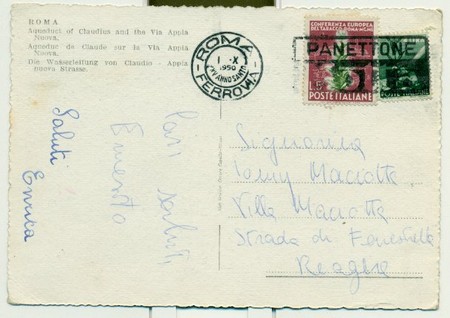 ROMA
Aqueduct of Claudius and the Via Appia
Nuova.
Aqueduc de Claude sur la Via Appia
Nuova.
Die Wasserleitung von Claudio - Appia
nuova Strasse.
ROMA
1 - X
1950
XXV ANNO SANTO
FERROVIA
CONFERENZA EUROPEA
DEL TABACCO ROMA
L.5
POSTE ITALIANE
PANETTONE
Saluti
Enrica
Cari saluti
Ernesto
Signorina
Maciotta
Villa Maciotta
Strada di